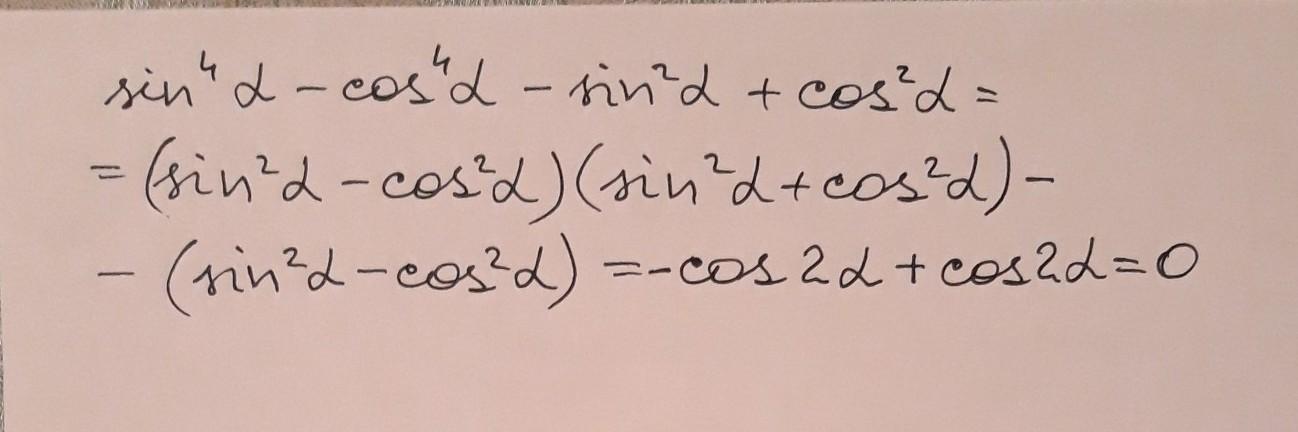 sin⁴α - cos⁴α - sin²α + cos²α =
= (sin²α - cos²α)(sin²α + cos²α) -
- (sin²α - cos²α) = -cos 2α + cos2α = 0